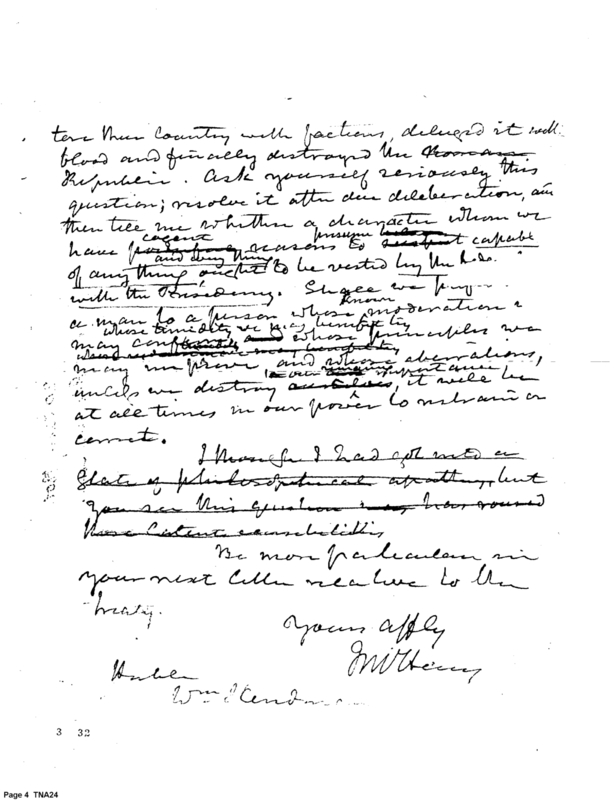 tore their Country with factions, deluged it with
blood and finally distroyed the Roman
Republic. Ask yourself seriously this
question; resolve it after due deliberation, and
then tell me whether a character whom we
cogent presume
have reasons to suspect capable
and every thing
of any thing ought to be vested by the
with the Presidency. Shall we prefer
known
a man to a person whose moderation &
whose timidity we may
may whose principles we
may improve, and whose aberrations,
our
unless we destroy ourselves, it will be
at all times in our power to restrain or
correct.
I thought I had got into a
State of philosophical apathy, but
you see this question has roused
those latent sensibilities
Be more particular in
your next letter relative to the
treaty.
Yours affly
McHenry
Wm
3 32
Page 4 TNA24